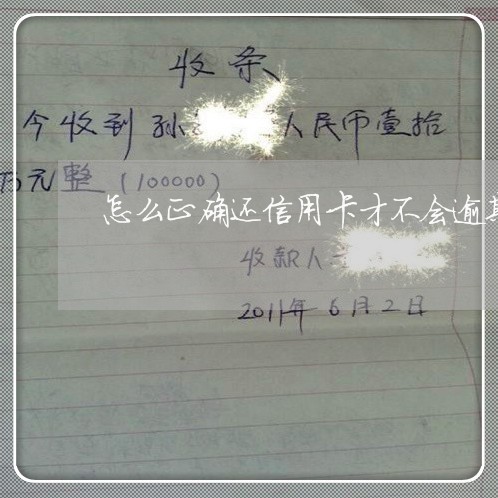 收条
今收到孙 人民币壹拾
万元整(100000)
怎么正确还信用卡才不会逾期
收款人
2011年6月2日